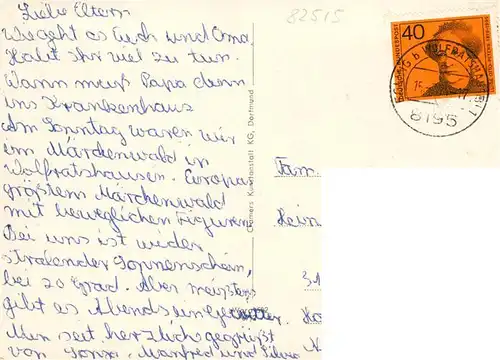 Liebe Eltern
Wie geht es Euch und Oma.
Habt Ihr viel zu tun.
Wann muß Papa denn
ins Krankenhaus
Am Sonntag waren wir
im Märchenwald in
Wolfratshausen. Europas
größtem Märchenwald
mit beweglichen Figuren
Bei uns ist wieder
stralender Sonnenschein,
bei 20 Grad. Aber meistens
gibt es Abends ein
Nun seit herzlichs gegrüßt
von Manfred und Silvia
82515
40
DEUTSCHE BUNDESPOST
8195
Cramers Kunstanstalt KG, Dortmund
Fam.
Hein